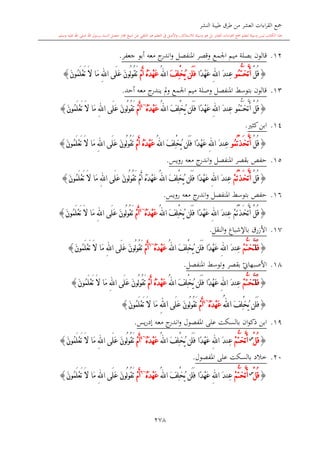 جمع القراءات العشر من طرق طيبة النشر
١٢. قالون بصلة ميم الجمع وقصر المنفصل واندرج معه أبو جعفر.
﴿ قُلْ أَتَّخَذْتُمُو عِندَ اللهِ عَهْدًا فَلَن يُخْلِفَ اللهُ عَهْدَهُ أَمْ تَقُولُونَ عَلَى اللهِ مَا لَا تَعْلَمُونَ ﴾
١٣. قالون بتوسط المنفصل وصلة ميم الجمع ولم يندرج معه أحد.
﴿ قُلْ أَتَّخَذْتُمُو عِندَ اللهِ عَهْدًا فَلَن يُخْلِفَ اللهُ عَهْدَهُ أَمْ تَقُولُونَ عَلَى اللهِ مَا لَا تَعْلَمُونَ ﴾
١٤. ابن كثير.
﴿ قُلْ أَتَّخَذْتُمُو عِندَ اللهِ عَهْدًا فَلَن يُخْلِفَ اللهُ عَهْدَهُ أَمْ تَقُولُونَ عَلَى اللهِ مَا لَا تَعْلَمُونَ ﴾
١٥. حفص بقصر المنفصل واندرج معه رويس.
﴿ قُلْ أَتَّخَذْتُمْ عِندَ اللهِ عَهْدًا فَلَن يُخْلِفَ اللهُ عَهْدَهُ أَمْ تَقُولُونَ عَلَى اللهِ مَا لَا تَعْلَمُونَ ﴾
١٦. حفص بتوسط المنفصل واندرج معه رويس.
﴿ قُلْ أَتَّخَذْتُمْ عِندَ اللهِ عَهْدًا فَلَن يُخْلِفَ اللهُ عَهْدَهُ أَمْ تَقُولُونَ عَلَى اللهِ مَا لَا تَعْلَمُونَ ﴾
١٧. الأزرق بالإشباع والنقل.
﴿ قُلَ اتَّخَذتُّمْ عِندَ اللهِ عَهْدًا فَلَن يُخْلِفَ اللهُ عَهْدَهُ أَمْ تَقُولُونَ عَلَى اللهِ مَا لَا تَعْلَمُونَ ﴾
١٨. الأصبهاني بقصر وتوسط المنفصل.
﴿ قُلَ اتَّخَذتُّمْ عِندَ اللهِ عَهْدًا فَلَن يُخْلِفَ اللهُ عَهْدَهُ أَمْ تَقُولُونَ عَلَى اللهِ مَا لَا تَعْلَمُونَ ﴾
﴿ فَلَن يُخْلِفَ اللهُ عَهْدَهُ أَمْ تَقُولُونَ عَلَى اللهِ مَا لَا تَعْلَمُونَ ﴾
١٩. ابن ذكوان بالسكت على المفصول واندرج معه إدريس.
﴿ قُلْ أَتَّخَذتُّمْ عِندَ اللهِ عَهْدًا فَلَن يُخْلِفَ اللهُ عَهْدَهُ أَمْ تَقُولُونَ عَلَى اللهِ مَا لَا تَعْلَمُونَ ﴾
٢٠. خلاد بالسكت على المفصول.
﴿ قُلْ أَتَّخَذتُّمْ عِندَ اللهِ عَهْدًا فَلَن يُخْلِفَ اللهُ عَهْدَهُ أَمْ تَقُولُونَ عَلَى اللهِ مَا لَا تَعْلَمُونَ ﴾
٢٧٨